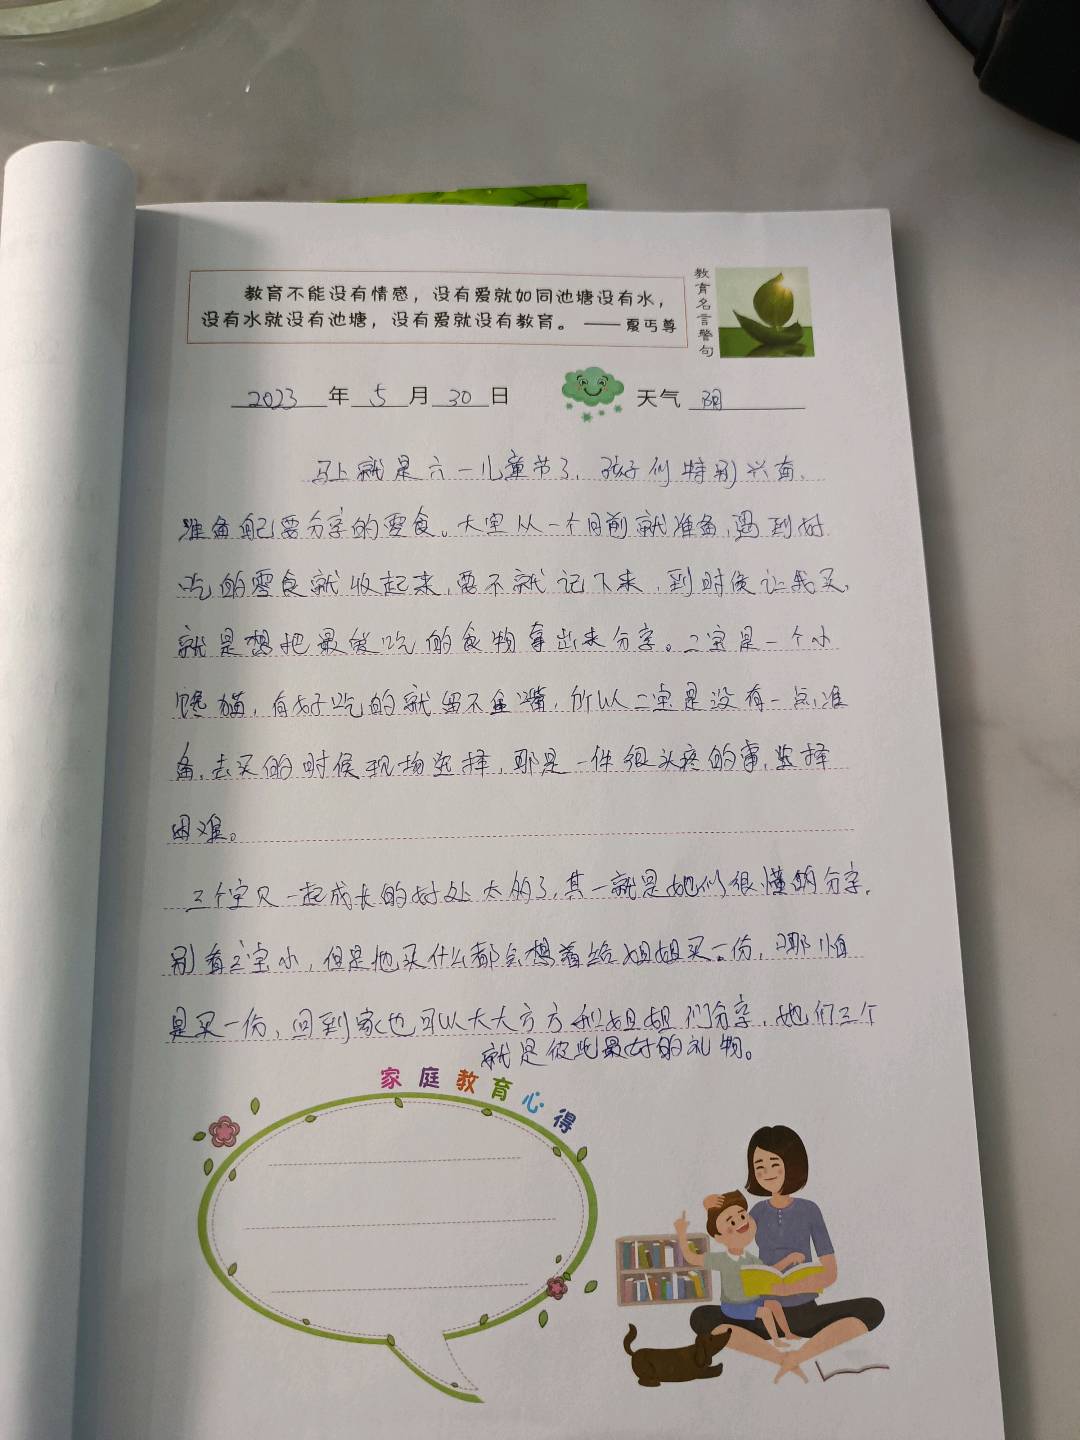 教育不能没有情感，没有爱就如同池塘没有水，
没有水就没有池塘，没有爱就没有教育。 ——夏丏尊
教育名言警句
2023年5月30日 天气 阴
马上就是六一儿童节了，孩子们特别兴奋，
准备自己要分享的零食。大宝从一个月前就准备，遇到好
吃的零食就收起来，要不就记下来，到时候让我买，
就是想把最能吃的食物拿出来分享。二宝是一个小
馋猫，有好吃的就留不住嘴，所以二宝是没有一点准
备，去买的时候现场选择，那是一件很头疼的事，选择
困难。
三个宝贝一起成长的好处太多了，其一就是她们很懂的分享，
别看三宝小，但是他买什么都会想着给姐姐买一份，哪怕
是买一份，回到家也可以大大方方和姐姐们分享，她们三个
就是彼此最好的礼物。
家庭教育心得